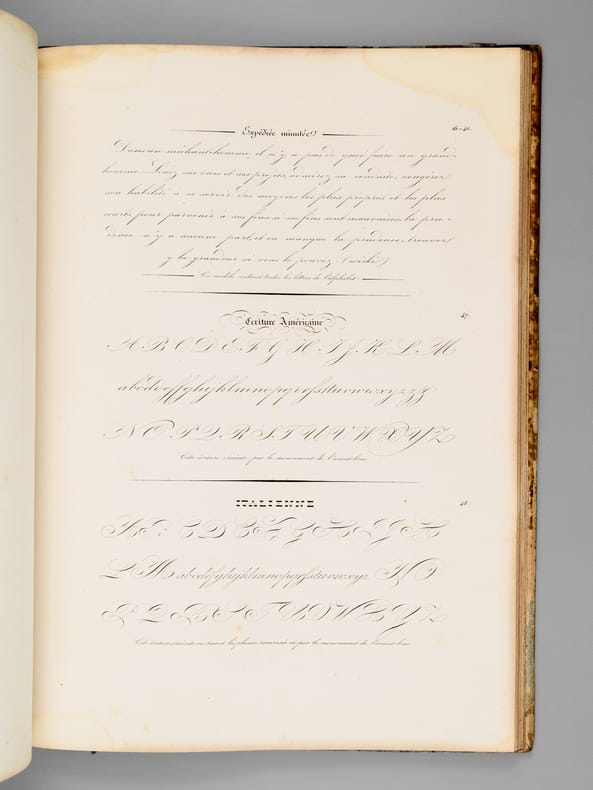 Expédiée minutée
46.
Dans un méchant homme, il n'y a pas de quoi faire un grand
homme. Louez ses vues et ses projets, admirez sa conduite, exagérez
son habileté à se servir des moyens les plus propres et les plus
courts pour parvenir à ses fins: si ses fins sont mauvaises, la pru-
dence n'y a aucune part, et où manque la prudence, trouvez
y la grandeur si vous le pouvez.
Ce modèle contient toutes les lettres de l'alphabet.
47.
Ecriture Américaine
A B C D E F G H I J K L M
abcdefghijklmnopqrstuvwxyz
N O P Q R S T U V W X Y Z
Cette écriture s'exécute par le mouvement de l'avant-bras
ITALIENNE
48.
A B C D E F G H I J K
L M abcdefghijklmnopqrstuvwxyz N O
P Q R S T U V W X Y Z
Cette écriture s'exécute en tenant la plume renversée et par le mouvement de l'avant-bras